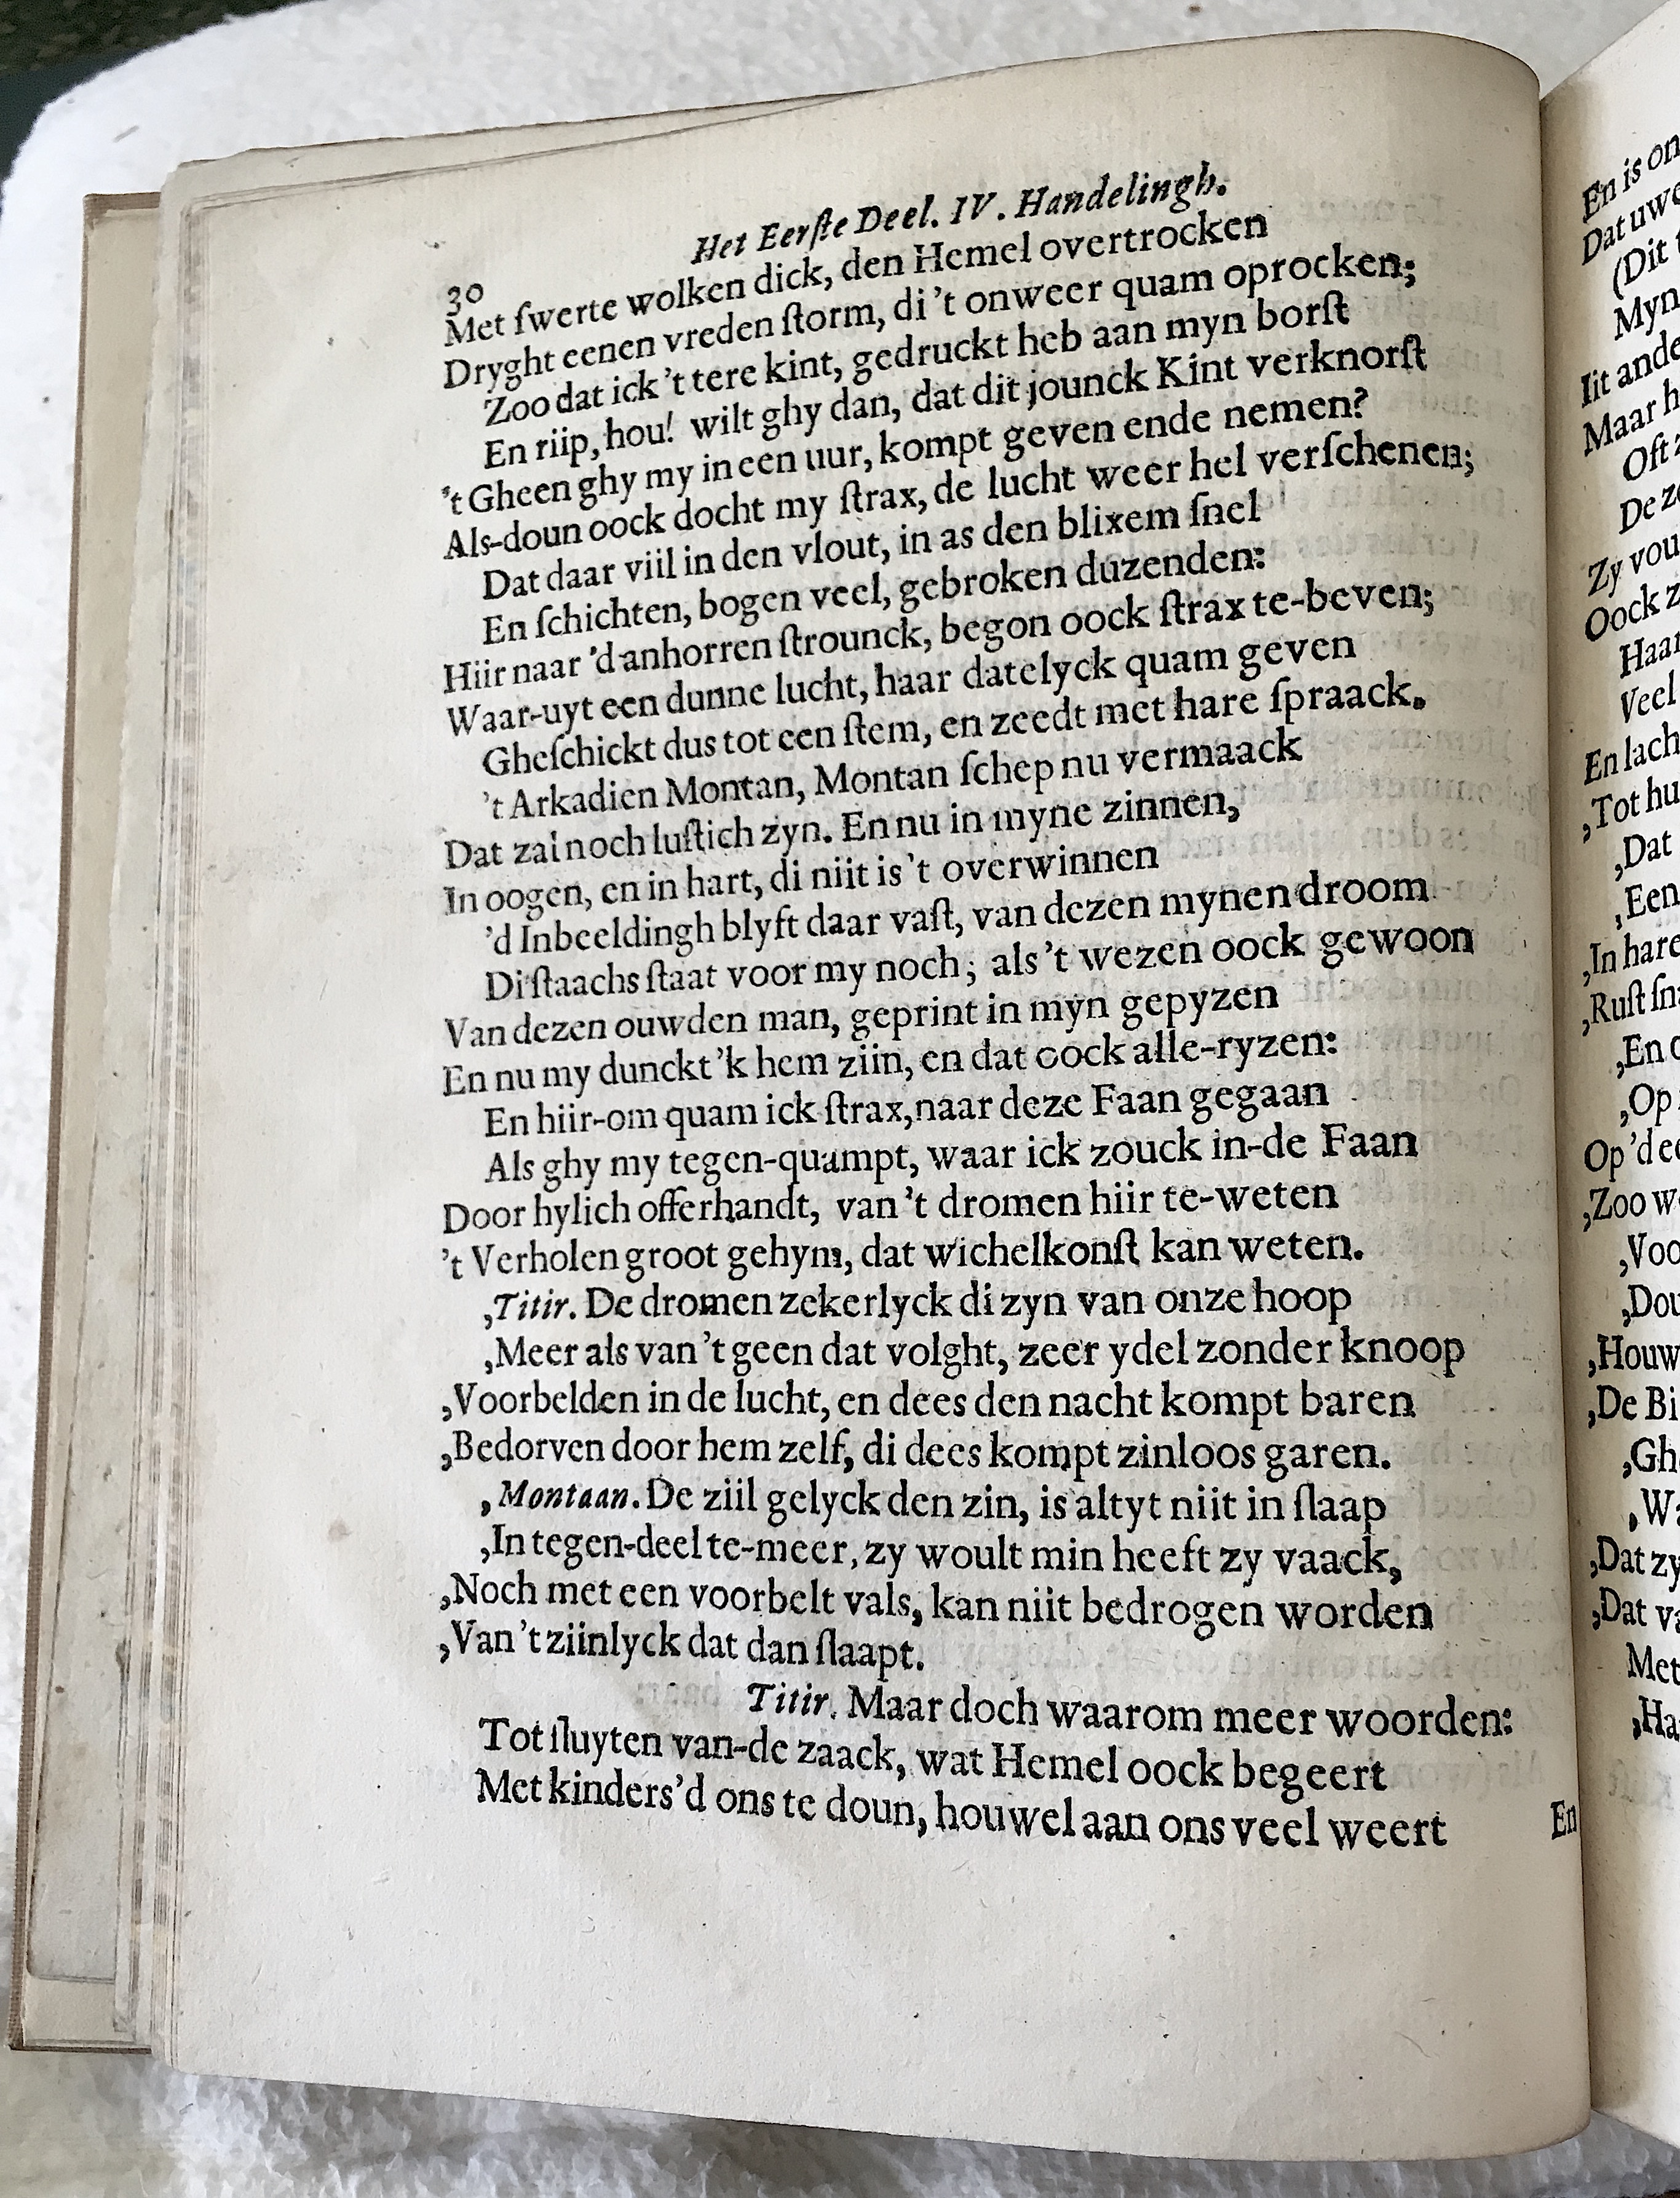 30
Het Eerſte Deel. IV. Handelingh.
Met ſwerte wolken dick, den Hemel overtrocken
Dryght eenen vreden ſtorm, di 't onweer quam oprocken;
Zoo dat ick 't tere kint, gedruckt heb aan myn borſt
En riip, hou! wilt ghy dan, dat dit jounck Kint verknorſt
't Gheen ghy my in een uur, kompt geven ende nemen?
Als-doun oock docht my ſtrax, de lucht weer hel verſchenen;
Dat daar viil in den vlout, in as den blixem ſnel
En ſchichten, bogen veel, gebroken duzenden:
Hiir naar 'd anhorren ſtrounck, begon oock ſtrax te-beven;
Waar-uyt een dunne lucht, haar datelyck quam geven
Gheſchickt dus tot een ſtem, en zeedt met hare ſpraack.
't Arkadien Montan, Montan ſchep nu vermaack
Dat zal noch luſtich zyn. En nu in myne zinnen,
In oogen, en in hart, di niit is 't overwinnen
'd Inbeeldingh blyft daar vaſt, van dezen mynen droom
Di ſtaachs ſtaat voor my noch; als 't wezen oock gewoon
Van dezen ouwden man, geprint in myn gepyzen
En nu my dunckt 'k hem ziin, en dat oock alle-ryzen:
En hiir-om quam ick ſtrax, naar deze Faan gegaan
Als ghy my tegen-quampt, waar ick zouck in-de Faan
Door hylich offerhandt, van 't dromen hiir te-weten
't Verholen groot gehym, dat wichelkonſt kan weten.
,Titir. De dromen zekerlyck di zyn van onze hoop
,Meer als van 't geen dat volght, zeer ydel zonder knoop
,Voorbelden in de lucht, en dees den nacht kompt baren
,Bedorven door hem zelf, di dees kompt zinloos garen.
,Montaan. De ziil gelyck den zin, is altyt niit in ſlaap
,In tegen-deel te-meer, zy woult min heeft zy vaack,
,Noch met een voorbelt vals, kan niit bedrogen worden
,Van 't ziinlyck dat dan ſlaapt.
Titir. Maar doch waarom meer woorden:
Tot ſluyten van-de zaack, wat Hemel oock begeert
Met kinders 'd ons te doun, houwel aan ons veel weert
En
En is
Dat uwe
(Dit
Myn
Iit ande
Maar h
Oft
De
Zy vou
Oock z
Haar
Veel
En lach
,Tot hu
,Dat
,Een
,In hare
,Ruſt
,En
,Op
Op 'd
,Zoo
,Voo
,Dou
,Houw
,De Bi
,Gh
,Wa
,Dat zy
,Dat va
Met
,Ha